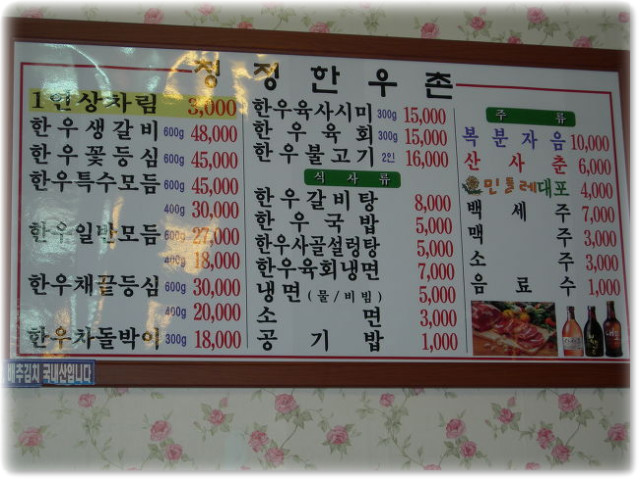 청정한우촌
1인상차림 3,000
한우생갈비 600g 48,000
한우꽃등심 600g 45,000
한우특수모듬 600g 45,000
400g 30,000
한우일반모듬 600g 27,000
400g 18,000
한우채끝등심 600g 30,000
400g 20,000
한우차돌박이 300g 18,000
한우육사시미 300g 15,000
한우육회 300g 15,000
한우불고기 2인 16,000
식사류
한우갈비탕 8,000
한우국밥 5,000
한우사골설렁탕 5,000
한우육회냉면 7,000
냉면(물/비빔) 5,000
소면 3,000
공기밥 1,000
주류
복분자음 10,000
산사춘 6,000
민들레대포 4,000
백세주 7,000
맥주 3,000
소주 3,000
음료수 1,000
배추김치 국내산입니다